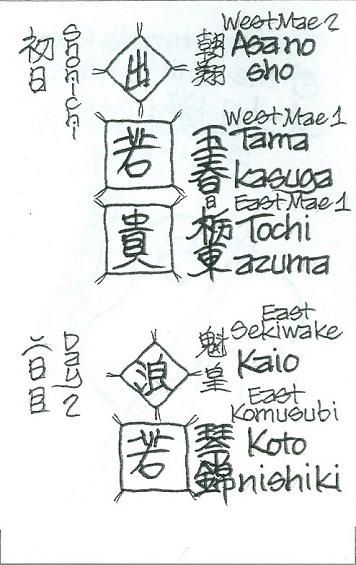 初日
Shonichi
出
朝翔
West Mae 2
Asano
sho
若
玉春日
West Mae 1
Tama
kasuga
貴
栃東
East Mae 1
Tochi
azuma
二日目
Day 2
浪
魁皇
East
Sekiwake
Kaio
若
琴錦
East
Komusubi
Koto
nishiki